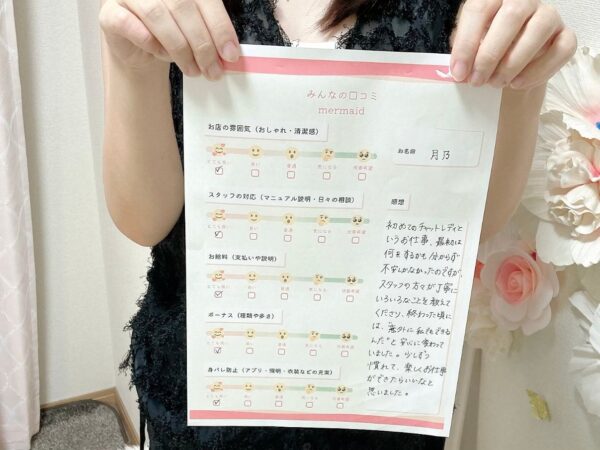 みんなの口コミ
mermaid
お店の雰囲気（おしゃれ・清潔感）
とても良い 良い 普通 気になる 改善希望
スタッフの対応（マニュアル説明・日々の相談）
とても良い 良い 普通 気になる 改善希望
お給料（支払いや説明）
とても良い 良い 普通 気になる 改善希望
ボーナス（種類や多さ）
とても良い 良い 普通 気になる 改善希望
身バレ防止（アプリ・照明・衣装などの充実）
とても良い 良い 普通 気になる 改善希望
お名前
月乃
感想
初めてのチャットレディと
いうお仕事、最初は
何をするかも分からず
不安しかなかったのですが、
スタッフの方々が丁寧に
いろいろなことを教えて
くださり、終わった頃に
は、"意外に私でもできる
んだ"と安心に変わって
いました。少しずつ
慣れて、楽しくお仕事
ができたらいいなと
思いました。